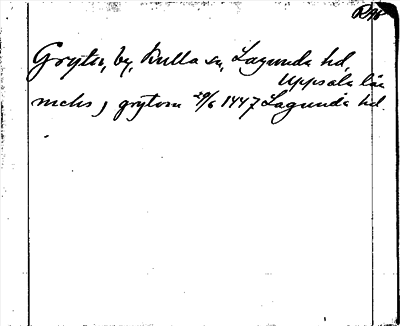 Rap
Gryta, by, Kulla sn, Lagunda hd,
Uppsala län
mehs, grytom 29/6 1447 Lagunda hd.